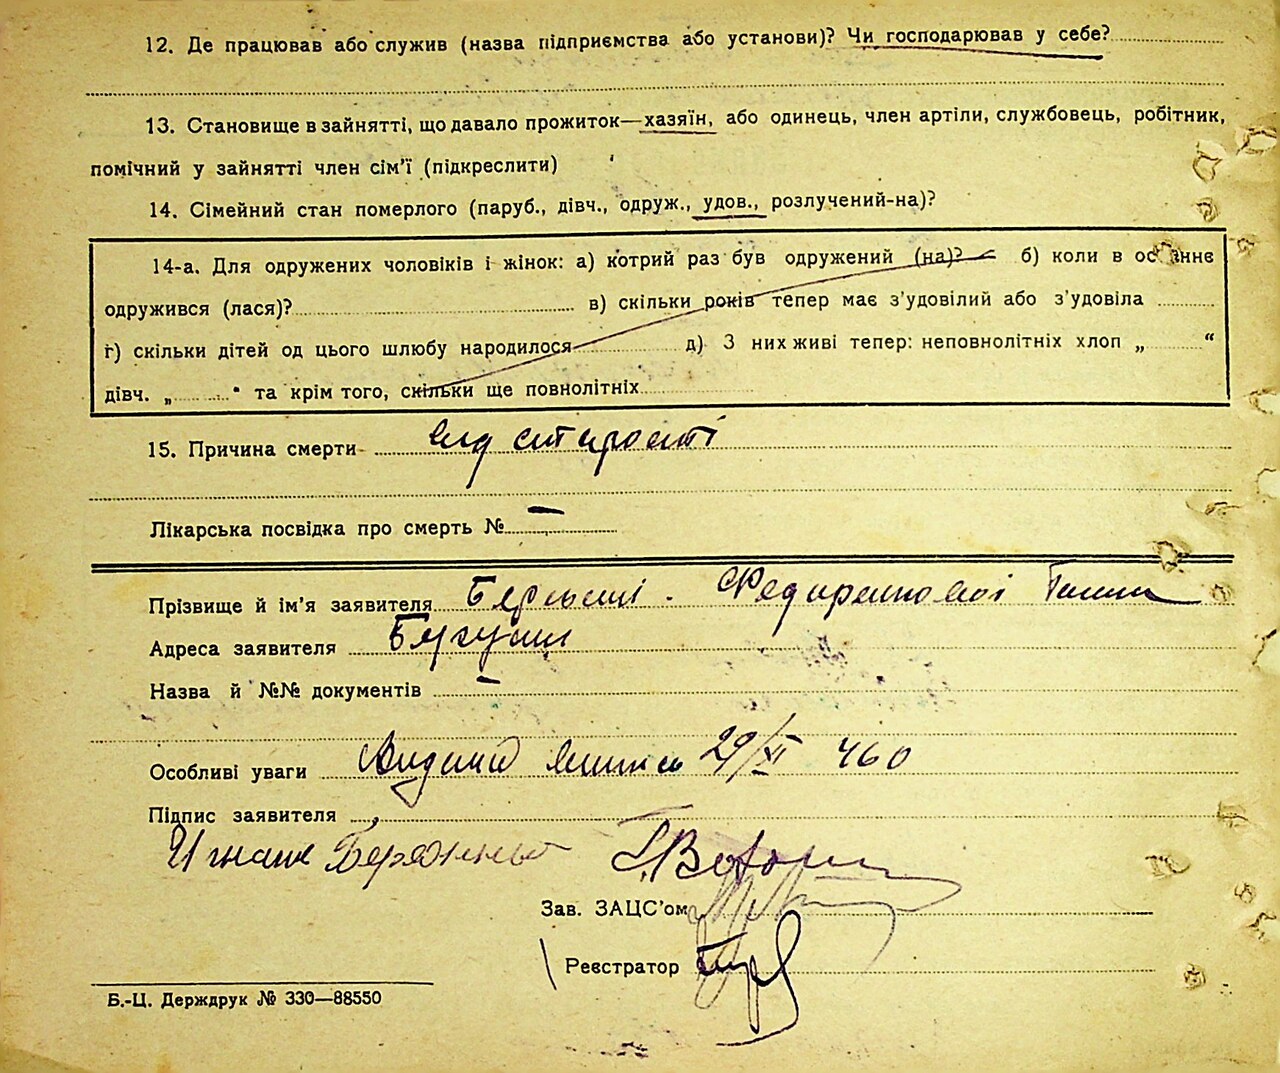 12. Де працював або служив (назва підприємства або установи)? Чи господарював у себе?
13. Становище в зайнятті, що давало прожиток—хазяїн, або одинець, член артіли, службовець, робітник,
помічний у зайнятті член сім'ї (підкреслити)
14. Сімейний стан померлого (паруб., дівч., одруж., удов., розлучений-на)?
14-а. Для одружених чоловіків і жінок: а) котрий раз був одружений (на)? б) коли в останнє
одружився (лася)? в) скільки років тепер має з'удовілий або з'удовіла
г) скільки дітей од цього шлюбу народилося д) З них живі тепер: неповнолітніх хлоп „ “
дівч. „ “ та крім того, скільки ще повнолітніх
15. Причина смерти від старості
Лікарська посвідка про смерть № —
Прізвище й ім'я заявителя
Адреса заявителя
Назва й №№ документів —
Особливі уваги 29/XI 460
Підпис заявителя
Зав. ЗАЦС'ом
Реєстратор
Б.-Ц. Держдрук № 330—88550